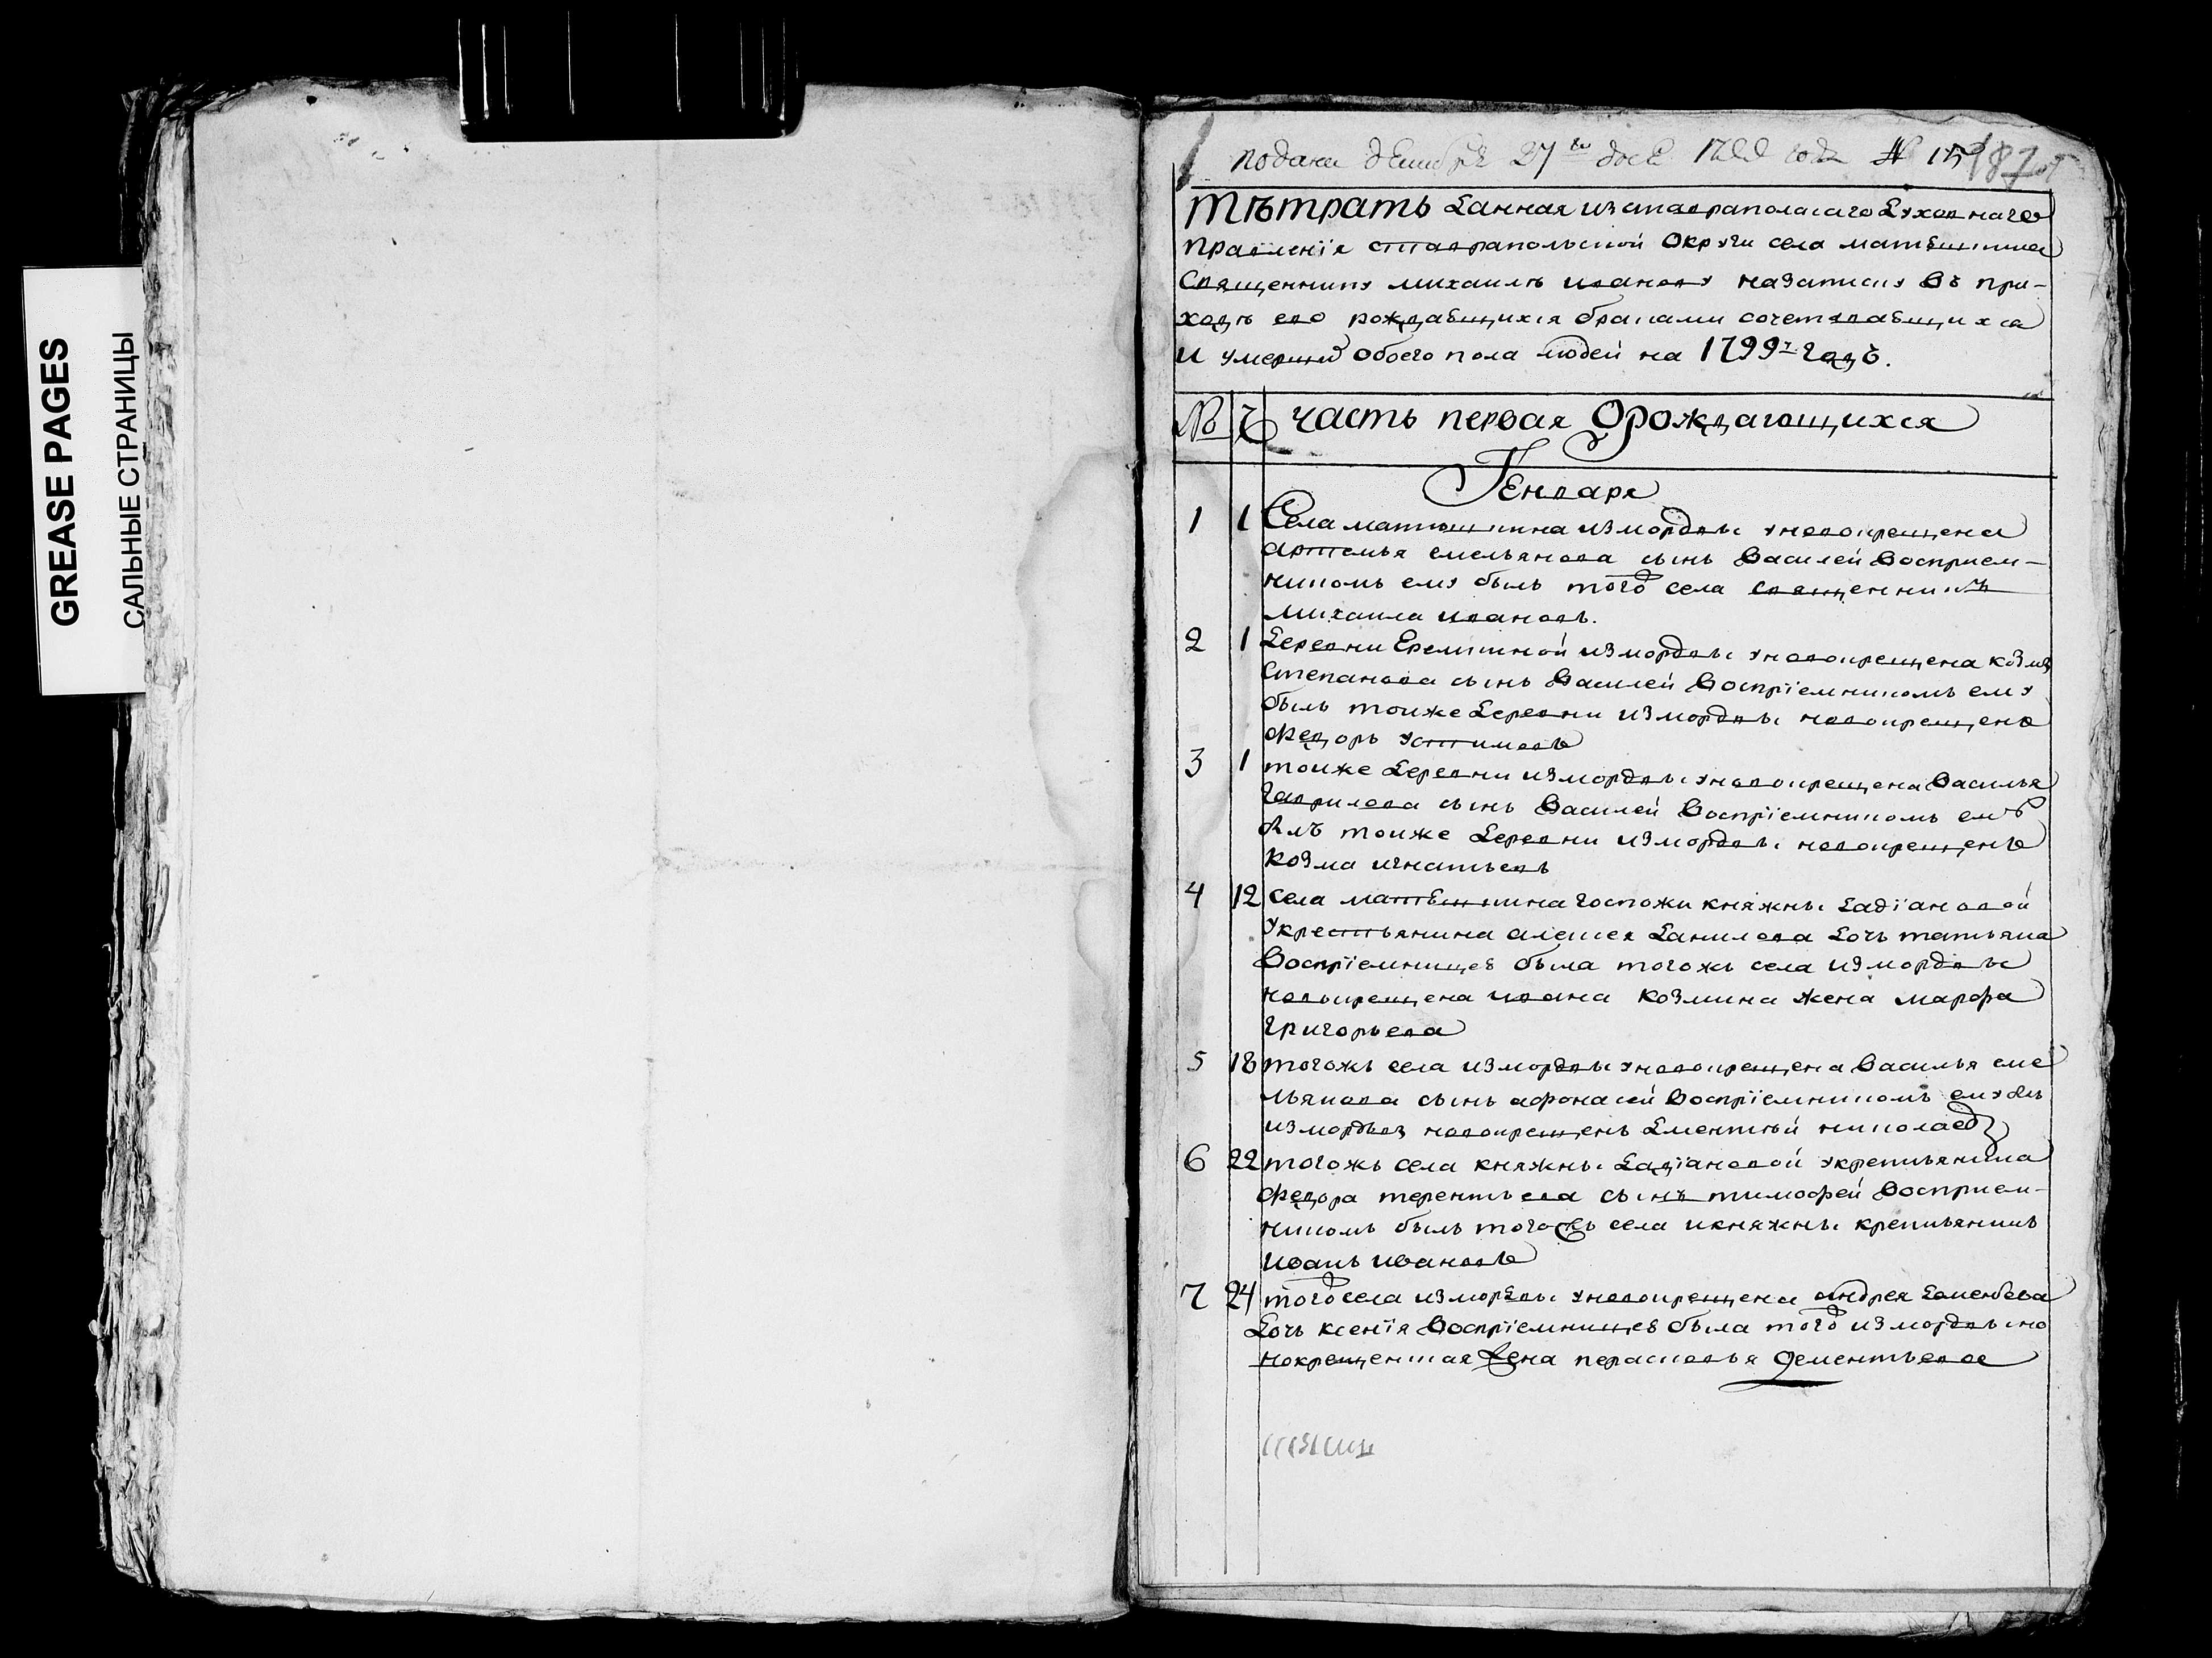 GREASE PAGES
САЛЬНЫЕ СТРАНИЦЫ
подана декабря 27 го дня 1799 года № 187
Тѣтрать данная изставрапольскаго духовнаго
правленїя ставрапольской округи села матюшкина
священнику михаилѣ иванову назаписку въ при-
ходѣ ево рождавшихся браками сочетававшихся
и умершихъ обоего пола людей на 1799й годъ.
№ Ч часть первая О рождающихся
Генваря
1 1 Села матюшкина измордвы уновокрещена
артемья емельянова сынъ Василей Восприем-
никомъ ему былъ тогожъ села священникъ
михаила ивановъ.
2 1 деревни Еремкиной измордвы уновокрещена козмы
степанова сынъ Василей Воспрїемникомъ ему
былъ тоиже деревни измордвы новокрещенъ
федоръ устимовъ
3 1 тоиже деревни измордвы уновокрещена Василья
гаврилова сынъ Василей Воспрїемникомъ ему
былъ тоиже деревни измордвы новокрещенъ
козма игнатьевъ
4 12 села матюшкина госпожи княжны дадїановой
укрестьянина алексея данилова дочь татьяна
Воспрїемницею была тогожъ села измордвы
новокрещена ивана козмина жена марфа
григорьева
5 18 тогожъ села измордвы уновокрещена Василья еме
льянова сынъ афонасей Воспрїемникомъ ему былъ
измордвы новокрещенъ дментей николаевъ
6 22 тогожъ села княжны дадїановой укрестьянина
федора терентьева сынъ тимофей Восприем-
никомъ былъ тогожъ села икняжны крестьянинъ
иванъ ивановъ
7 24 тогожъ села измордвы уновокрещена андрея
дочь ксенїя Воспрїемницею была тогожъ измордвы но
вокрещенная жена парасковья дементьева